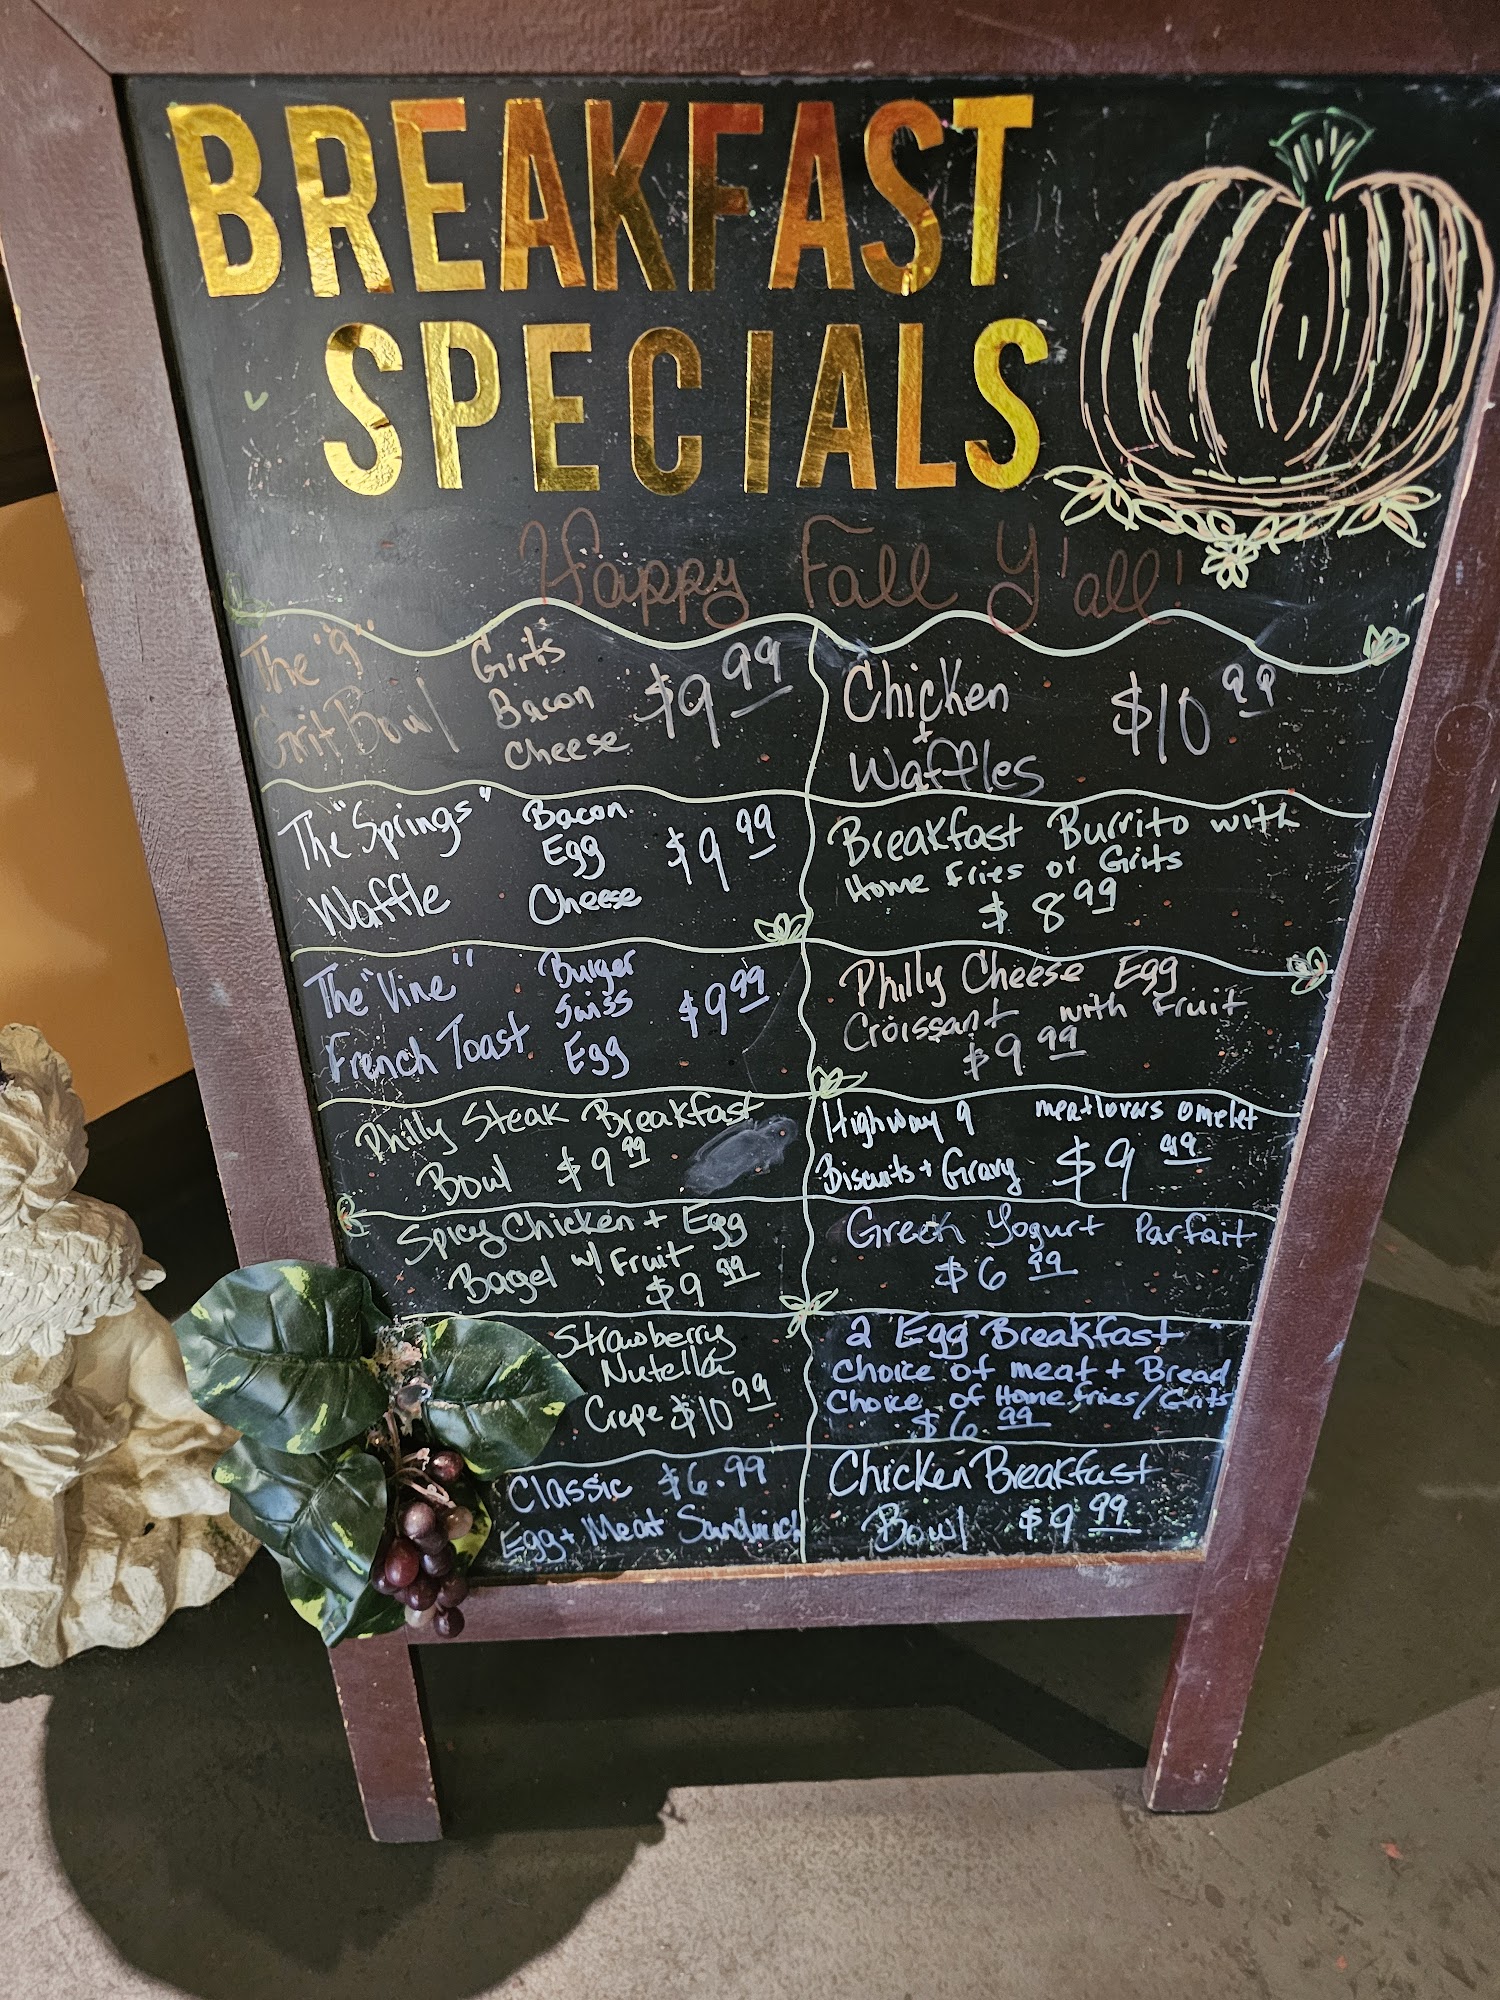 BREAKFAST
SPECIALS
Happy Fall Y'all!
The "9"
Grit Bowl
Grits
Bacon
Cheese
$9 99
The "Springs"
Waffle
Bacon
Egg
Cheese
$9 99
The "Vine"
French Toast
Burger
Swiss
Egg
$9 99
Philly Steak Breakfast
Bowl $9 99
Spicy Chicken + Egg
Bagel w/ Fruit
$9 99
Strawberry
Nutella
Crepe $10 99
Classic $6.99
Egg + Meat Sandwich
Chicken
+
Waffles
$10 99
Breakfast Burrito with
Home Fries or Grits
$8 99
Philly Cheese Egg
Croissant with Fruit
$9 99
Highway 9 meatlovers omelet
Biscuits + Gravy $9 99
Greek Yogurt Parfait
$6 99
2 Egg Breakfast
Choice of meat + Bread
Choice of Home fries/Grits
$6 99
Chicken Breakfast
Bowl $9 99